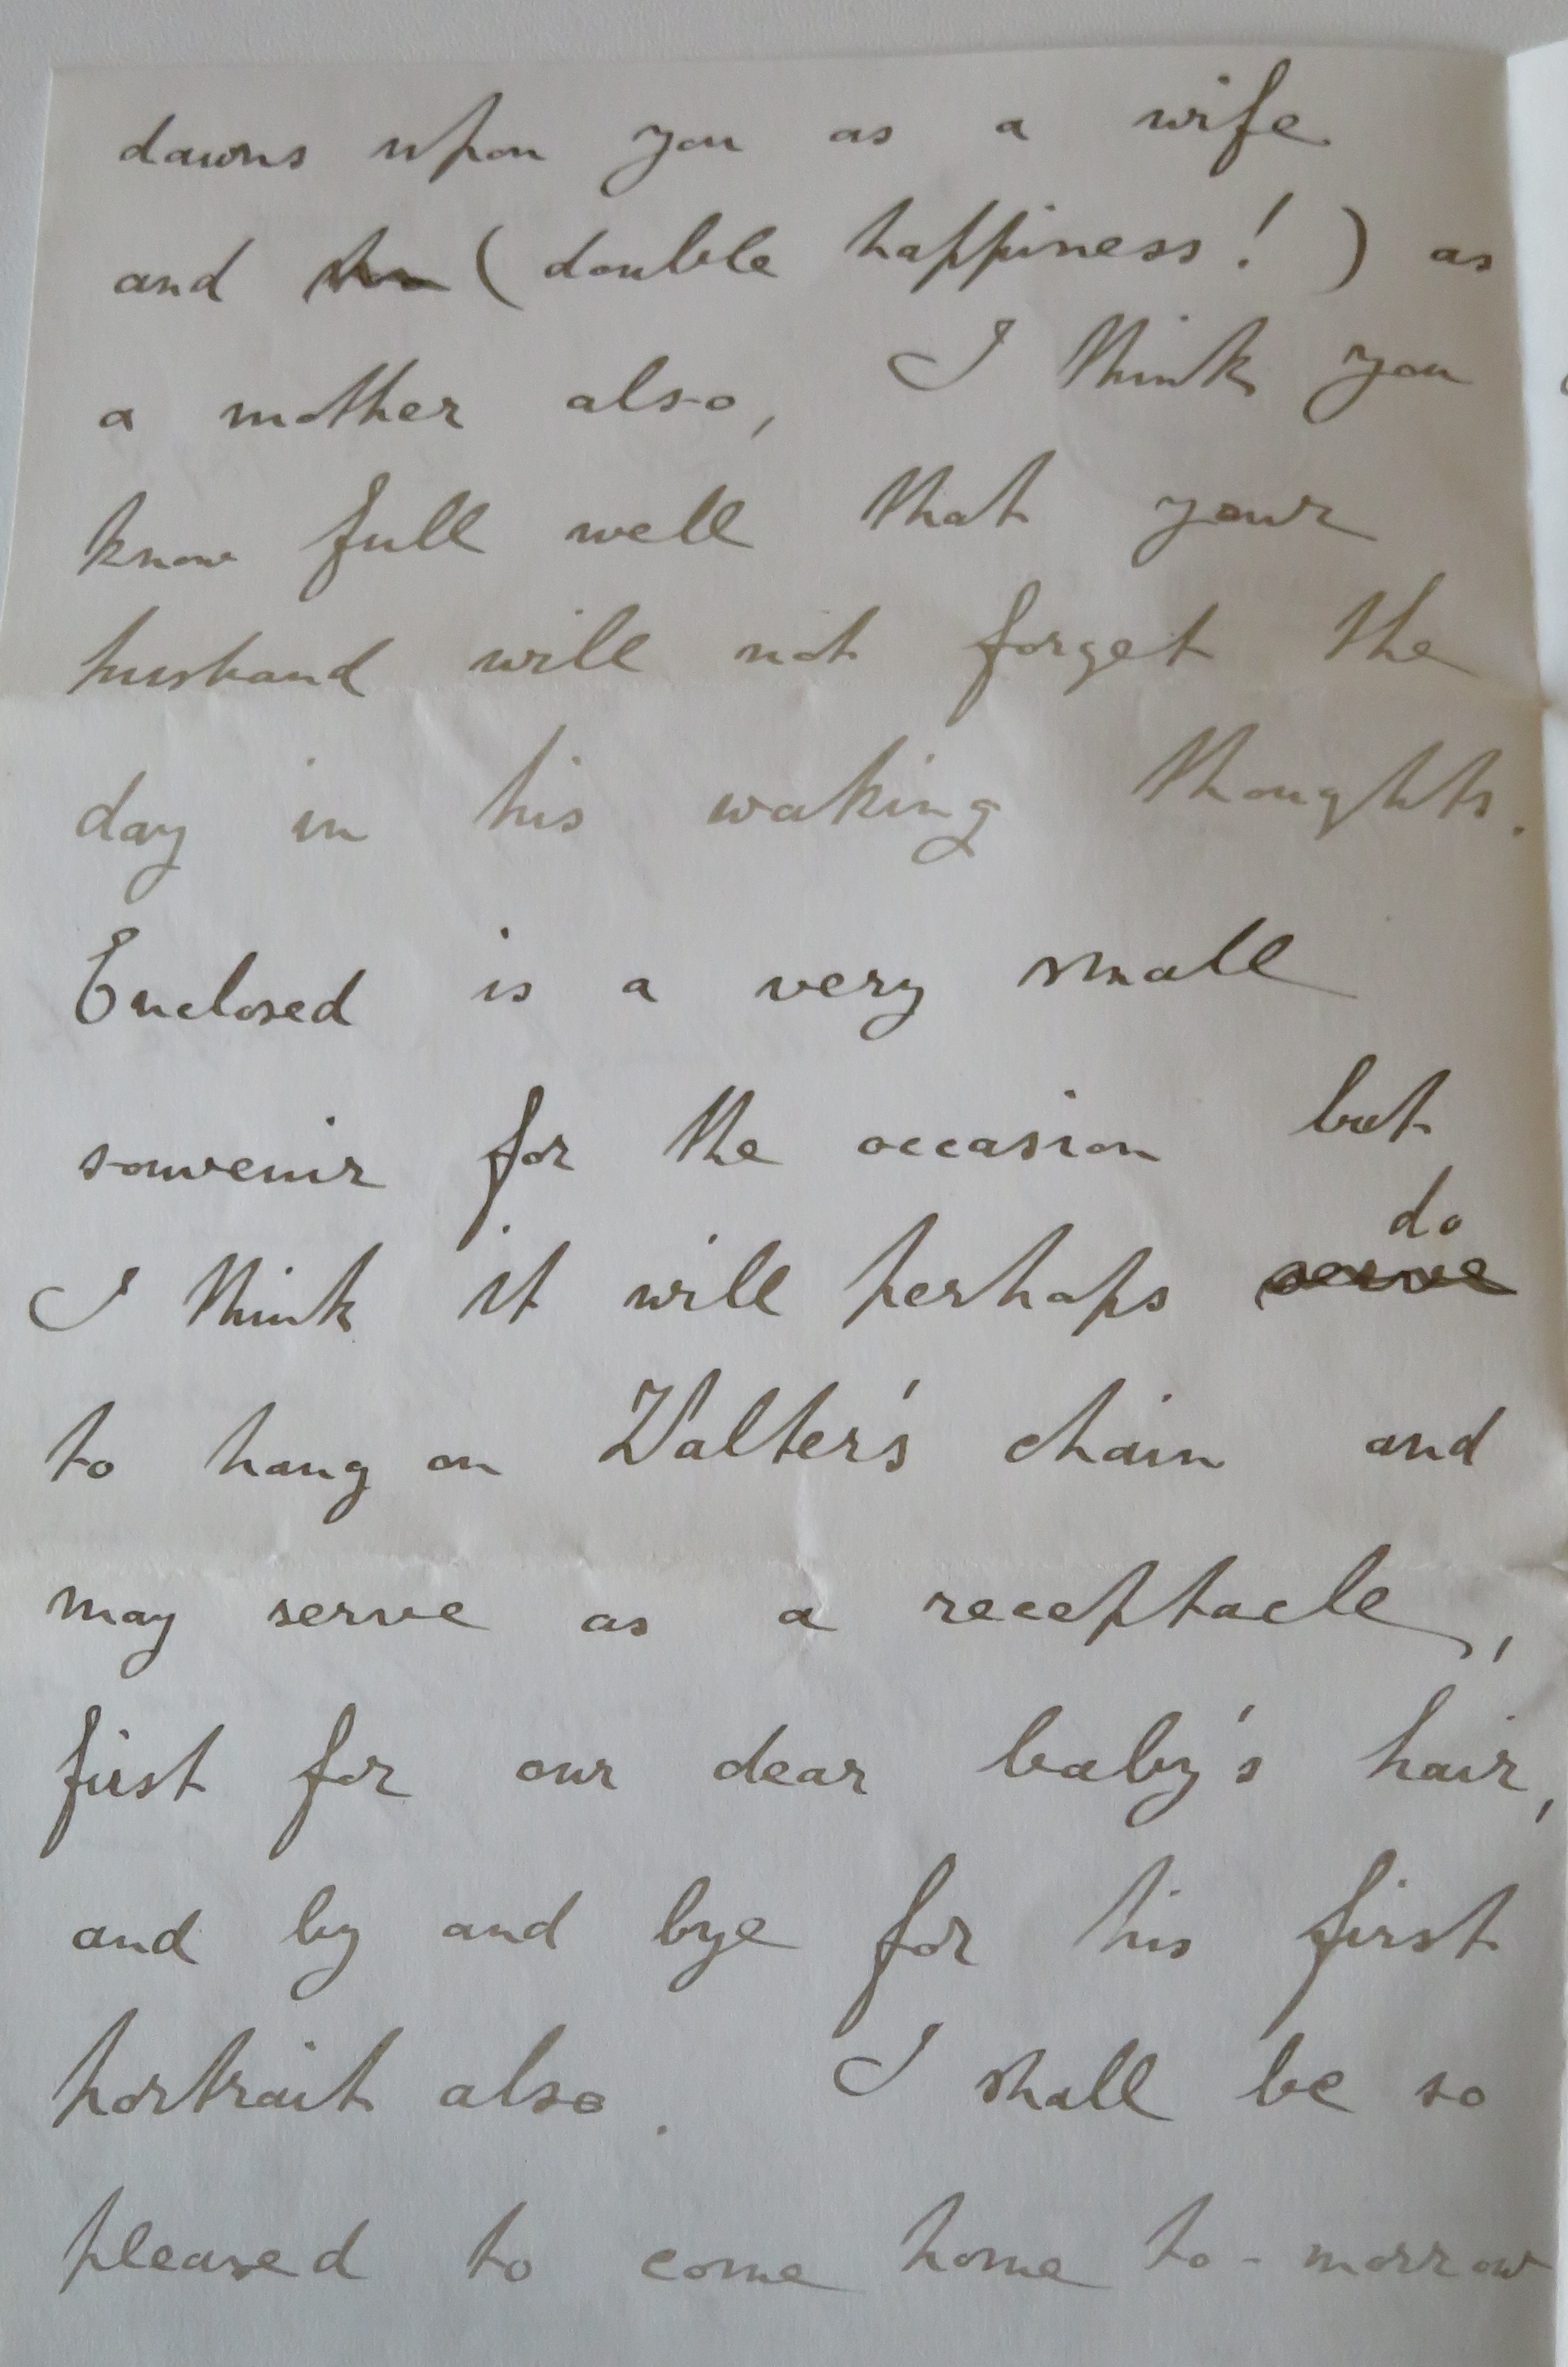 dawns upon you as a wife
and (double happiness! ) as
a mother also, I think you
know full well that your
husband will not forget the
day in his waking thoughts.
Enclosed is a very small
souvenir for the occasion but
do
I think it will perhaps serve
to hang on Walter's chain and
may serve as a receptacle,
first for our dear baby's hair,
and by and bye for his first
portrait also. I shall be so
pleased to come home to-morrow